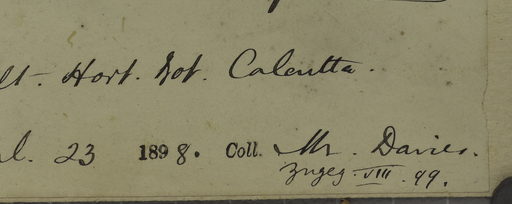 lt. Hort. Bot. Calcutta.
l. 23 1898. Coll. Mr. Davies.
zugeg. VIII. 99.